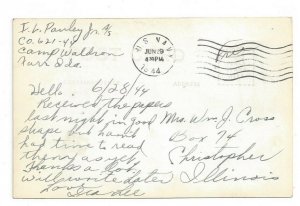 I. L. Pauley Jr. A/S
CO. 621-44
Camp Waldron
Farr Ids.
U.S. NAVY
JUN 29
4 PM
44
Free
Hello. 6/28/44
Received the papers
last night in good
shape but havnt
had time to read
them as yet.
Thanks a lot,
will write later
Love
Ira Lee
Mrs Wm. J. Cross
Box 74
Christopher
Illinois